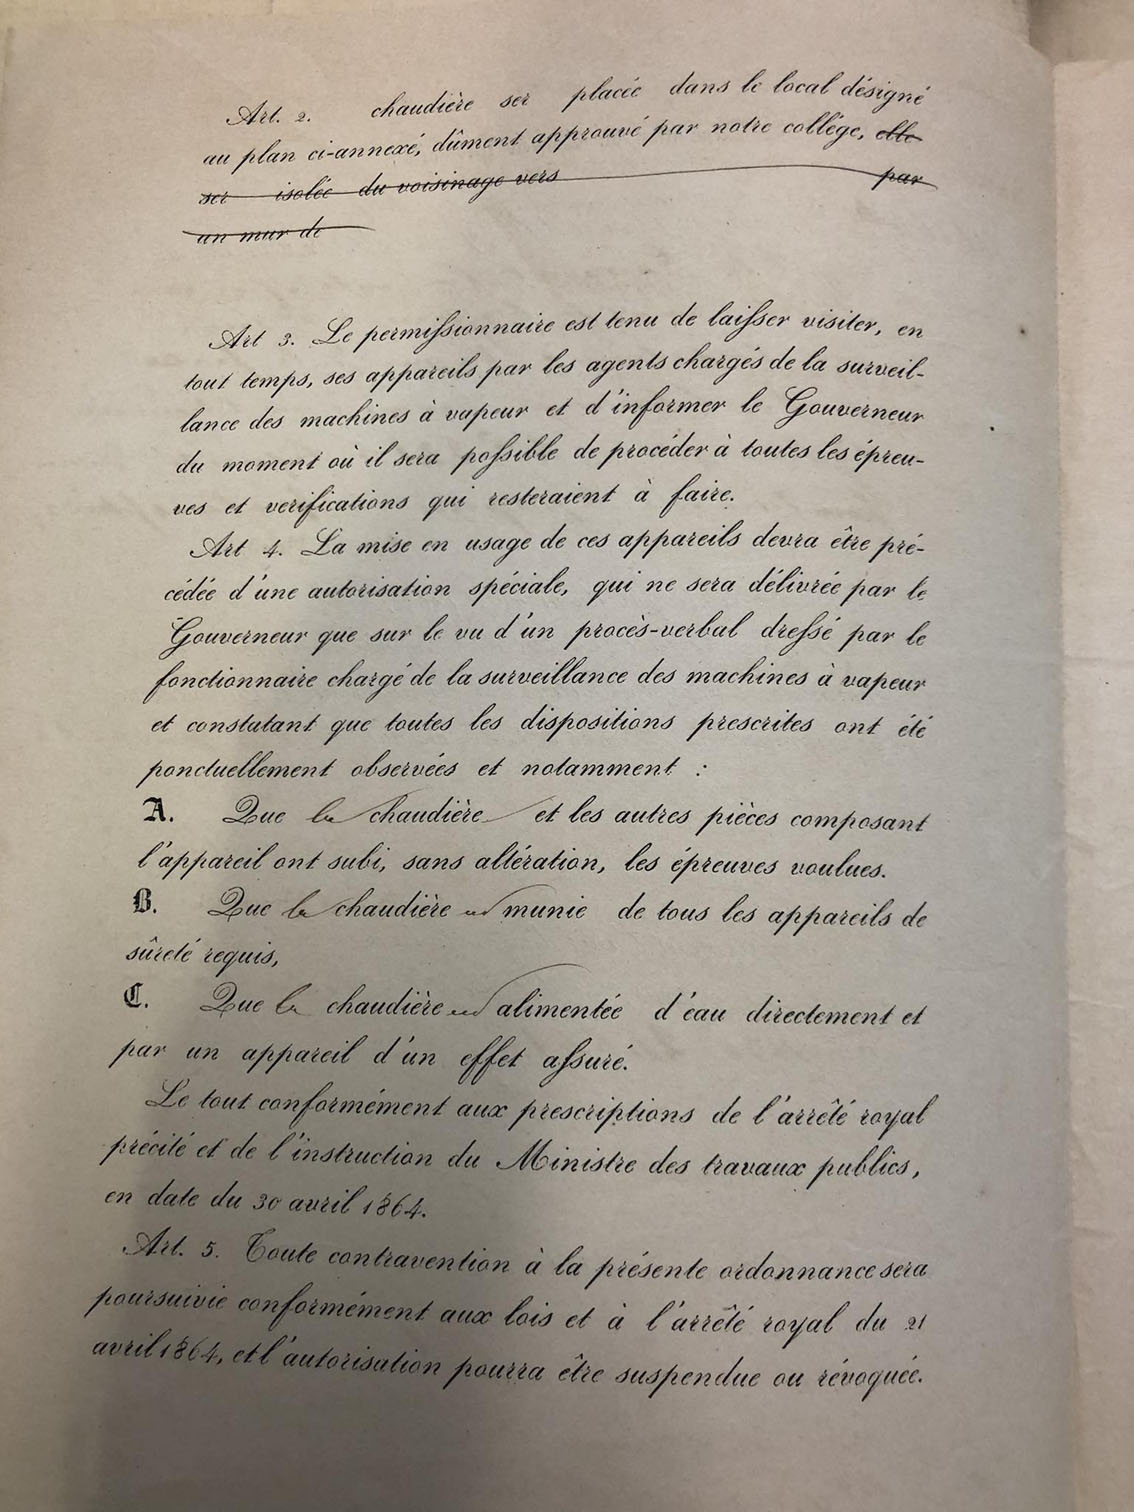 Art. 2. chaudière ser placée dans le local désigné
au plan ci-annexé, dûment approuvé par notre collége, elle
ser isolée du voisinage vers par
un mur de
Art 3. Le permissionnaire est tenu de laisser visiter, en
tout temps, ses appareils par les agents chargés de la surveil-
lance des machines à vapeur et d'informer le Gouverneur
du moment où il sera possible de procéder à toutes les épreu-
ves et verifications qui resteraient à faire.
Art 4. La mise en usage de ces appareils devra être pré-
cédée d'une autorisation spéciale, qui ne sera délivrée par le
Gouverneur que sur le vu d'un procès-verbal dressé par le
fonctionnaire chargé de la surveillance des machines à vapeur
et constatant que toutes les dispositions prescrites ont été
ponctuellement observées et notamment :
A. Que la chaudière et les autres pièces composant
l'appareil ont subi, sans altération, les épreuves voulues.
B. Que la chaudière est munie de tous les appareils de
sûreté requis,
C. Que la chaudière est alimentée d'eau directement et
par un appareil d'un effet assuré.
Le tout conformément aux prescriptions de l'arrêté royal
précité et de l'instruction du Ministre des travaux publics,
en date du 30 avril 1864.
Art. 5. Toute contravention à la présente ordonnance sera
poursuivie conformément aux lois et à l'arrêté royal du 21
avril 1864, et l'autorisation pourra être suspendue ou révoquée.